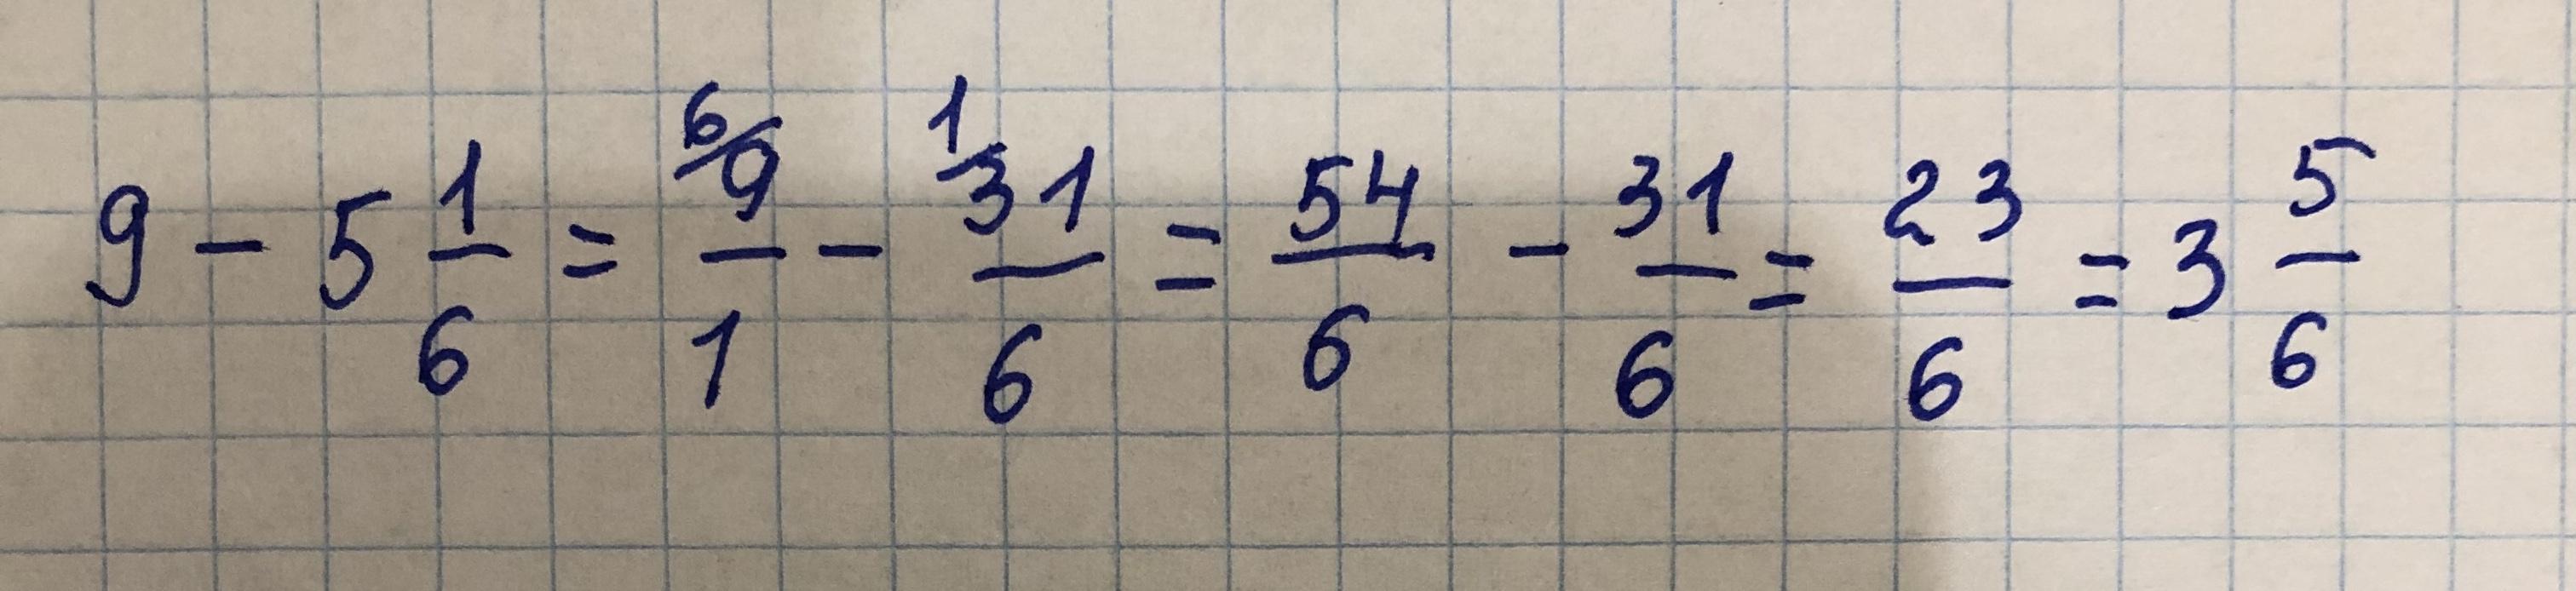 9 - 5 1/6 = 6/ 9/1 - 1/ 31/6 = 54/6 - 31/6 = 23/6 = 3 5/6